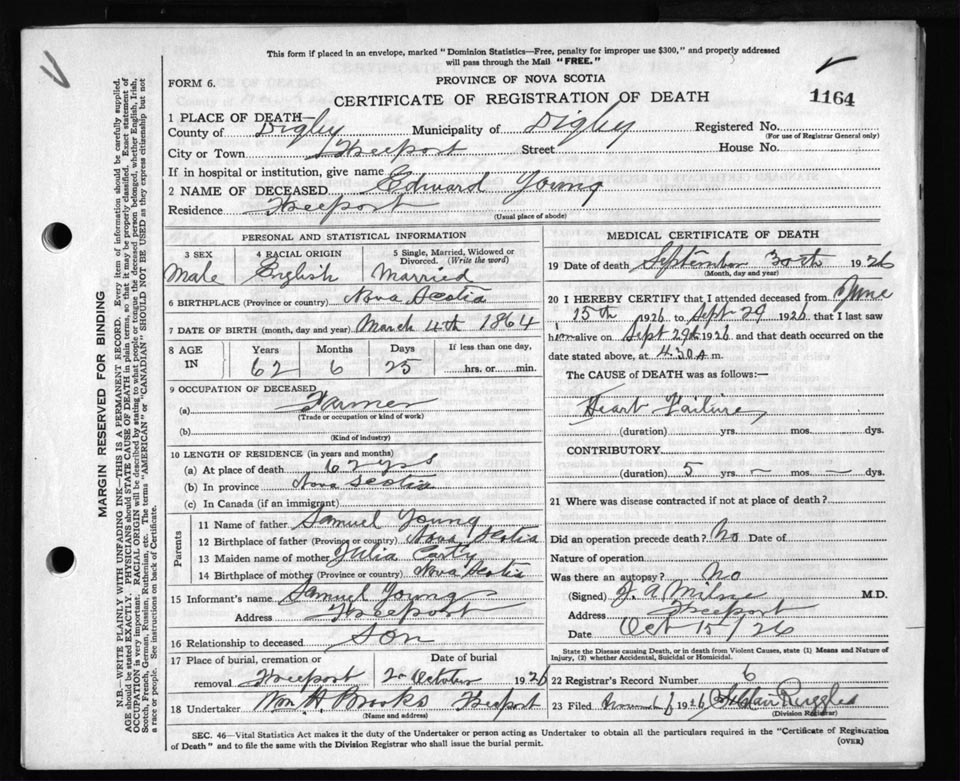 This form if placed in an envelope, marked "Dominion Statistics—Free, penalty for improper use $300," and properly addressed
will pass through the Mail "FREE."
FORM 6.
PROVINCE OF NOVA SCOTIA
CERTIFICATE OF REGISTRATION OF DEATH
1164
1 PLACE OF DEATH—
County of Digby Municipality of Digby Registered No.
(For use of Registrar General only)
City or Town Freeport Street House No.
If in hospital or institution, give name
2 NAME OF DECEASED Edward Young
Residence Freeport
(Usual place of abode)
PERSONAL AND STATISTICAL INFORMATION
3 SEX 4 RACIAL ORIGIN 5 Single, Married, Widowed or Divorced. (Write the word)
Male English Married
6 BIRTHPLACE (Province or country) Nova Scotia
7 DATE OF BIRTH (month, day and year) March 4th 1864
8 AGE IN Years Months Days If less than one day,
62 6 25 hrs. or min.
9 OCCUPATION OF DECEASED
(a) Farmer
(Trade or occupation or kind of work)
(b)
(Kind of industry)
10 LENGTH OF RESIDENCE (in years and months)
(a) At place of death 62 yrs
(b) In province Nova Scotia
(c) In Canada (if an immigrant)
Parents
11 Name of father Samuel Young
12 Birthplace of father (Province or country) Nova Scotia
13 Maiden name of mother Julia Carty
14 Birthplace of mother (Province or country) Nova Scotia
15 Informant's name Samuel Young
Address Freeport
16 Relationship to deceased Son
17 Place of burial, cremation or removal Freeport Date of burial 2 October 1926
18 Undertaker Wm H. Brooks Freeport
(Name and address)
MEDICAL CERTIFICATE OF DEATH
19 Date of death September 30th 1926
(Month, day and year)
20 I HEREBY CERTIFY that I attended deceased from June
15th 1926 to Sept 29 1926 that I last saw
him alive on Sept 29th 1926 and that death occurred on the
date stated above, at 4.30 a m.
The CAUSE of DEATH was as follows:—
Heart Failure
(duration) yrs. mos. dys.
CONTRIBUTORY
(duration) 5 yrs. — mos. — dys.
21 Where was disease contracted if not at place of death?
Did an operation precede death? No Date of
Nature of operation
Was there an autopsy? No
(Signed) J. A. Milne M.D.
Address Freeport
Date Oct 15/26
State the Disease causing Death, or in death from Violent Causes, state (1) Means and Nature of
Injury, (2) whether Accidental, Suicidal or Homicidal.
22 Registrar's Record Number 6
23 Filed November 6 1926 Ruggles
(Division Registrar)
SEC. 46—Vital Statistics Act makes it the duty of the Undertaker or person acting as Undertaker to obtain all the particulars required in the "Certificate of Registration
of Death" and to file the same with the Division Registrar who shall issue the burial permit.
(OVER)
MARGIN RESERVED FOR BINDING
N.B.—WRITE PLAINLY WITH UNFADING INK—THIS IS A PERMANENT RECORD. Every item of information should be carefully supplied.
AGE should be stated EXACTLY. PHYSICIANS should STATE CAUSE OF DEATH in plain terms, so that it may be properly classified. Exact statement of
OCCUPATION is very important. RACIAL ORIGIN will be described by stating to what people or tongue the deceased person belonged, whether English, Irish,
Scotch, French, German, Russian, Ruthenian, etc. The terms "AMERICAN" or "CANADIAN" SHOULD NOT BE USED as they express citizenship but not
a race or people. See instructions on back of Certificate.